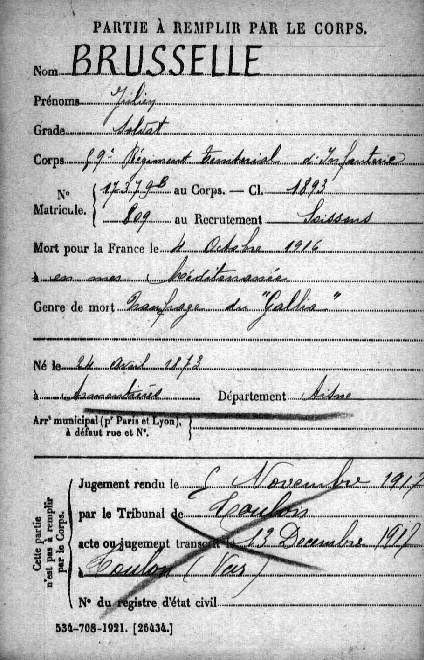 PARTIE À REMPLIR PAR LE CORPS.
Nom BRUSSELLE
Prénoms Jules
Grade Soldat
Corps 59e Régiment Territorial d'Infanterie
No Matricule. 17379B au Corps. — Cl. 1893
809 au Recrutement Soissons
Mort pour la France le 4 Octobre 1916
à en mer Méditerranée
Genre de mort Naufrage du "Gallia"
Né le 24 Avril 1873
à Armentières Département Aisne
Arrt municipal (pr Paris et Lyon), à défaut rue et No.
Cette partie n'est pas à remplir par le Corps.
Jugement rendu le 5 Novembre 1917
par le Tribunal de Toulon
acte ou jugement transcrit le 13 Decembre 1917
à Toulon (Var)
No du registre d'état civil
534-708-1921. [26434.]